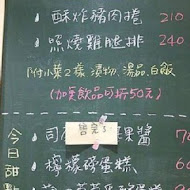 酥炸豬肉捲 210
照燒雞腿排 240
附小菜2樣 漬物、湯品、白飯
(加點飲品可折50元)
今日甜點
司康 果醬
售完了
檸檬磅蛋糕